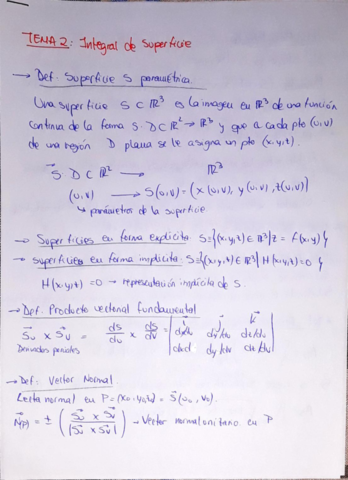 TEMA 2: Integral de Superficie
→ Def. Superficie S paramétrica.
Una superficie S ⊂ ℝ³ es la imagen en ℝ³ de una función
continua de la forma S: D ⊂ ℝ² → ℝ³ y que a cada pto (u,v)
de una región D plana se le asigna un pto (x,y,z).
S⃗: D ⊂ ℝ² → ℝ³
(u,v) → S(u,v) = (x(u,v), y(u,v), z(u,v))
↳ parámetros de la superficie.
→ Superficies en forma explícita: S={(x,y,z) ∈ ℝ³ | z = f(x,y)}
→ Superficies en forma implícita: S={(x,y,z) ∈ ℝ³ | H(x,y,z)=0}
H(x,y,z)=0 → representación implícita de S.
→ Def: Producto vectorial fundamental
i⃗ j⃗ k⃗
S⃗u x S⃗v = dS/du x dS/dv = | dx/du dy/du dz/du |
Derivadas parciales dx/dv dy/dv dz/dv
→ Def: Vector Normal.
normal en P = (x₀, y₀, z₀) = S⃗(u₀, v₀).
N⃗(P) = ± ( S⃗u x S⃗v / |S⃗u x S⃗v| ) → Vector normal unitario en P